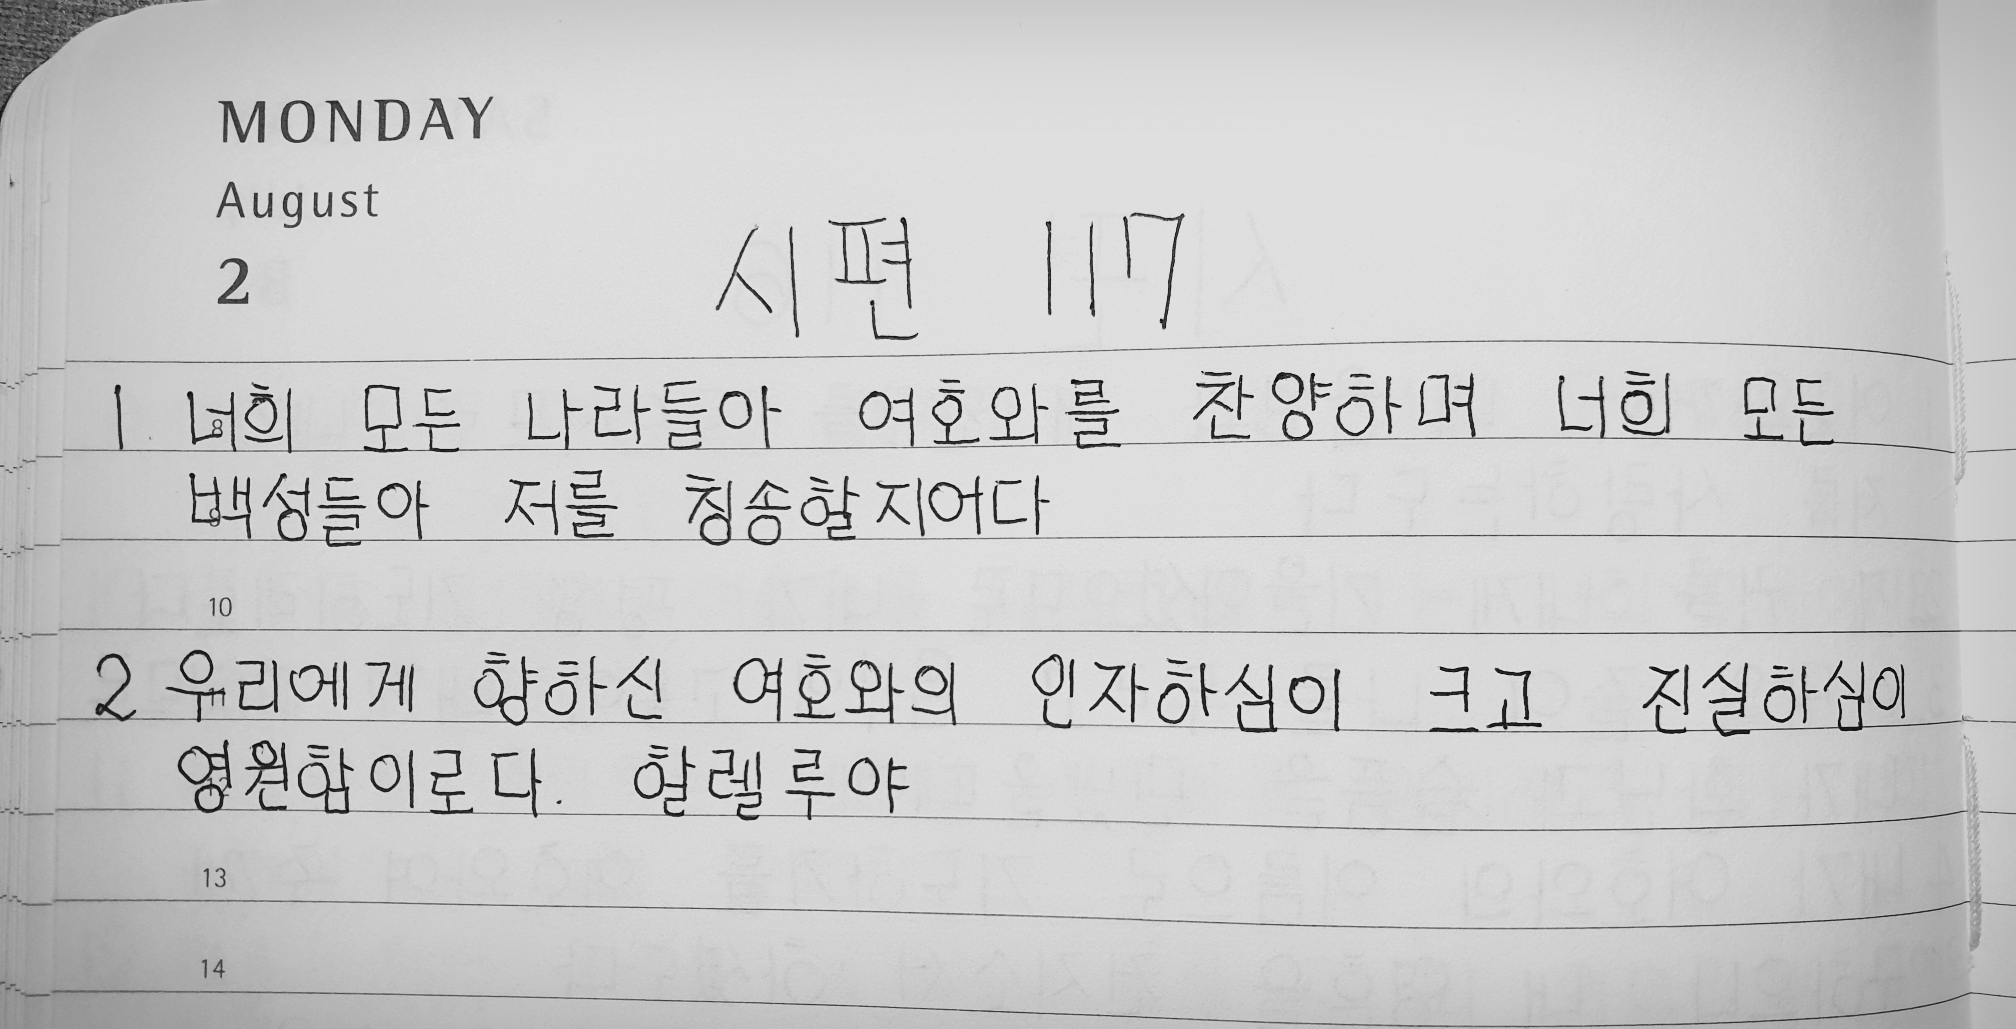 MONDAY
August
2
시편 117
1 너희 모든 나라들아 여호와를 찬양하며 너희 모든
8
백성들아 저를 칭송할지어다
9
10
2 우리에게 향하신 여호와의 인자하심이 크고 진실하심이
11
영원함이로다. 할렐루야
12
13
14